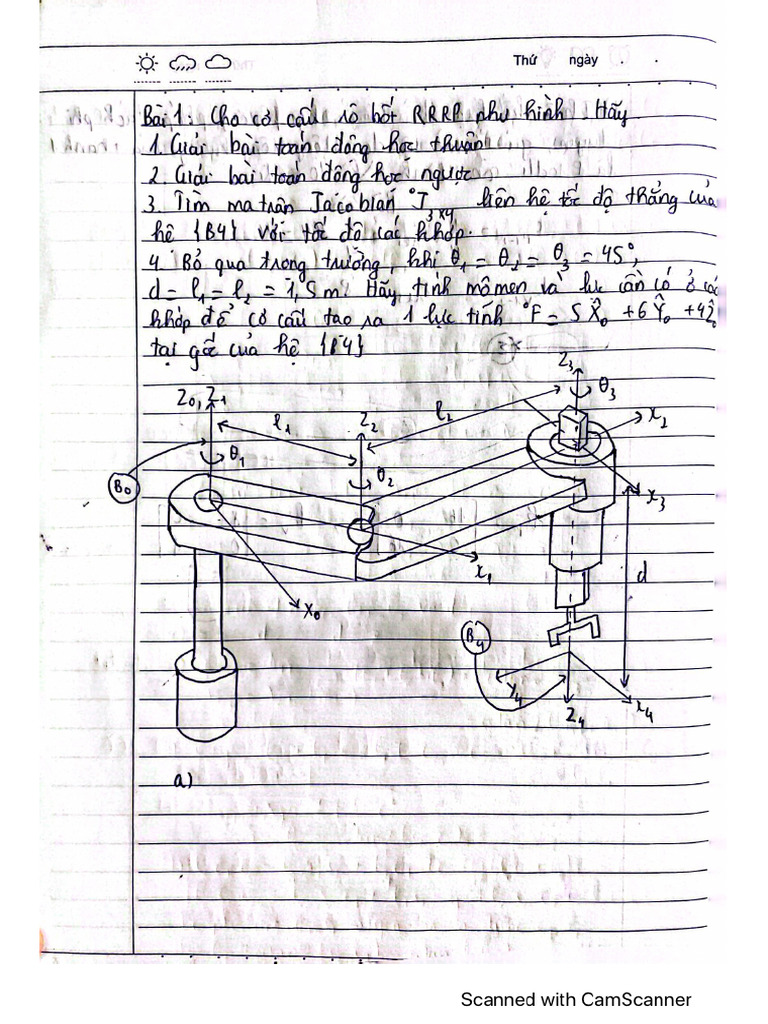 Thứ ngày . .
Bài 1: Cho cơ cấu rô bốt RRRP như hình. Hãy
1. Giải bài toán động học thuận
2. Giải bài toán động học ngược
3. Tìm ma trận Jacobian ⁰J₃ₓ₄ liên hệ tốc độ thẳng của
hệ {B4} với tốc độ các khớp.
4. Bỏ qua trọng trường, khi θ₁ = θ₂ = θ₃ = 45°,
d = l₁ = l₂ = 1,5m. Hãy tính mômen và lực cần có ở các
khớp để cơ cấu tạo ra 1 lực tĩnh ⁰F = 5X̂₀ + 6Ŷ₀ + 4Ẑ₀
tại gốc của hệ {B4}
Z₃
θ₃
Z₀, Z₁
l₁
l₂
Z₂
x₂
θ₁
θ₂
B₀
x₃
x₁
d
x₀
B₄
y₄
x₄
Z₄
a)
Scanned with CamScanner